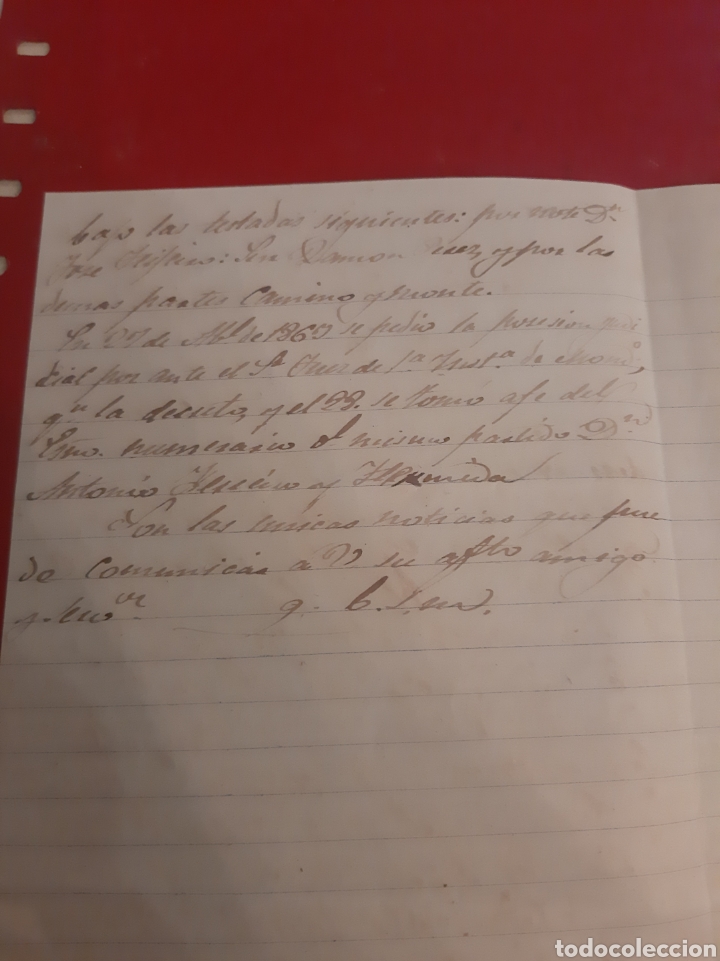 bajo las siguientes: por Norte Dn.
José : Sur Ramon y por las
demas partes Camino y monte.
En 27 de Abl. de 1867 se pidio la posesion ju
dicial por ante el Sr. Juez de 1ª Instª. de
qn. la decretó, y el 28. se tomó a fe del
Esno. numerario del mismo partido Dn.
Antonio y Hermida
Son las unicas noticias que pue
de comunicar a V su afto amigo
y Sero.or q. b. s. m.
todocoleccion
todocoleccion.net